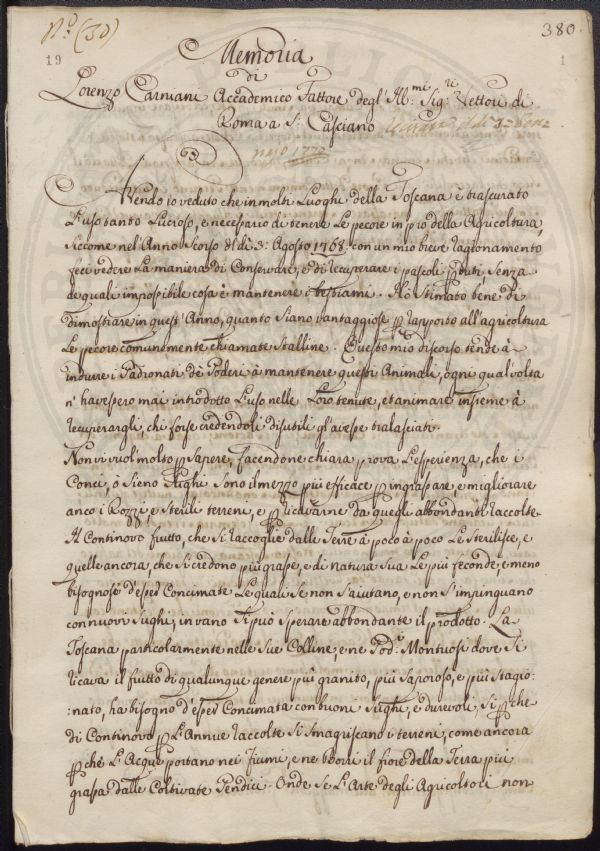 N.º (30)
380.
19
1
Memoria
di
Lorenzo Carniani Accademico Fattore degl' Ill:mi Sig:ri Vettori di
Roma a S: Casciano
1772
Avendo io veduto che in molti Luoghi della Toscana è trascurato
L'uso tanto Lucroso, e necessario di tenere Le pecore in prò della Agricoltura,
Siccome nel'Anno scorso il dì 3: Agosto 1768. con un mio breve ragionamento
feci vedere La maniera di Conservare, e di recuperare i pascoli pduti Senza
de quali impossibile cosa è mantenere i bestiami. Hò Stimato bene di
dimostrare in quest'Anno, quanto Siano vantaggiose p rapporto all'agricoltura
Le pecore comunemente chiamate Stalline. Questo mio discorso tende à
indurre i Padronati dè Poderi à mantenere questi Animali, ogni qual volta
n'havessero mai introdotto L'uso nelle Loro tenute, et animare insieme à
recuperargli, chi forse credendoli disutili gl'avesse tralasciati.
Non vi vuol molto p Sapere, facendone chiara prova L'esperienza, che i
Conci, o Sieno Sughi Sono il mezzo più efficace p ingrassare, e migliorare
anco i Rozzi, e Sterili terreni, e p ricavarne da quegli abbondanti raccolte.
Il Continovo frutto, che Si raccoglie dalle Terre à poco à poco Le Sterilisce, e
quelle ancora, che Si credono più grasse, e di natura Sua Le più feconde, e meno
bisognose d'esser Concimate Le quali Se non S'aiutano, e non S'impinguano
con nuovi Sughi, in vano Si può Sperare abbondante il prodotto. La
Toscana particolarmente nelle Sue Colline, e ne Pod:i Montuosi dove Si
ricava il frutto di qualunque genere più granito, più Saporoso, e più Stagio:
:nato, ha bisogno d'esser Concimata con buoni Sughi, e durevoli, Si pche
di Continovo p L'Annue raccolte Si Smagriscano i terreni, come ancora
pchè L'Acque portano nei Fiumi, e ne borri il fiore della Terra più
grassa dalle Coltivate Pendici. Onde Se L'Arte degli Agricoltori non